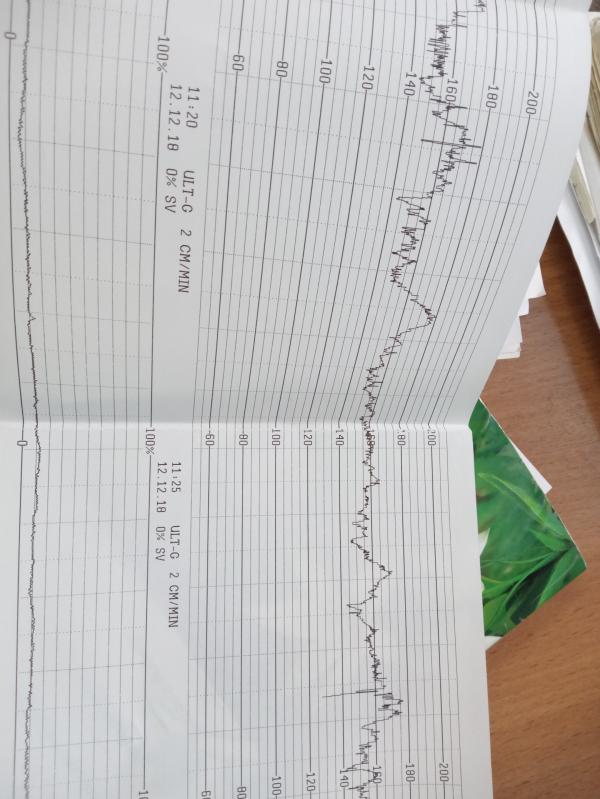 200
180
160
140
120
100
80
60
100%
0
11:20 ULT-G 2 CM/MIN
12.12.18 0% SV
200
180
160
140
120
100
80
60
100%
0
11:25 ULT-G 2 CM/MIN
12.12.18 0% SV
200
180
160
140
120
100
80